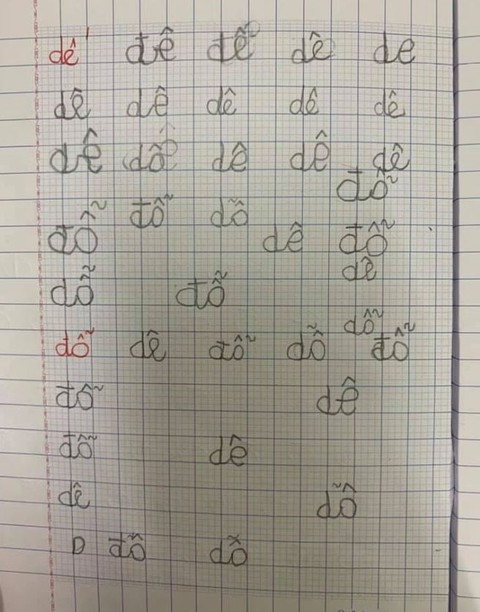 dế đê đễ dê de
dê dê dê dê dê
dê dê dê dê
đỗ
đỗ đỗ dỗ dê đỗ
dỗ đỗ dê
đỗ
dỗ dê đỗ dỗ đỗ
đỗ dê
đỗ dê
dê dỗ
D đỗ dỗ